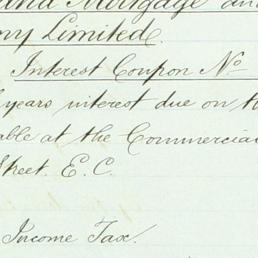 and Mortgage and
ny Limited.
Interest Coupon No
years interest due on th
able at the Commercial
Street. E. C.
Income Tax.